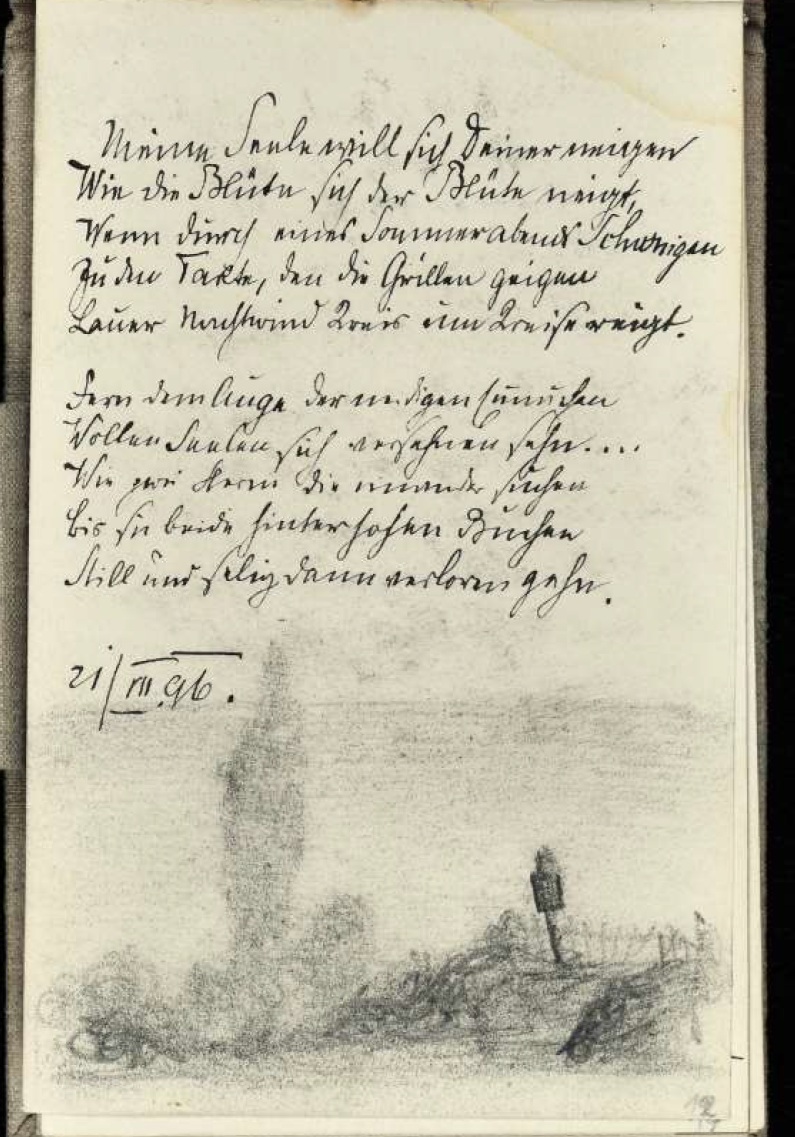 Meine Seele will sich Deiner neigen
Wie die Blüte sich der Blüte neigt,
Wenn durch eines Sommerabends Schweigen
Zu dem Takte, den die Grillen geigen
Lauer Nachtwind Kreis um Kreise reigt.
Fern dem Auge der neidigen Eunuchen
Wollen Seelen sich versehnen sehn....
Wie zwei Sterne die einander suchen
bis sie beide hinter hohen Buchen
Still und selig dann verloren gehn.
21/VII.96.